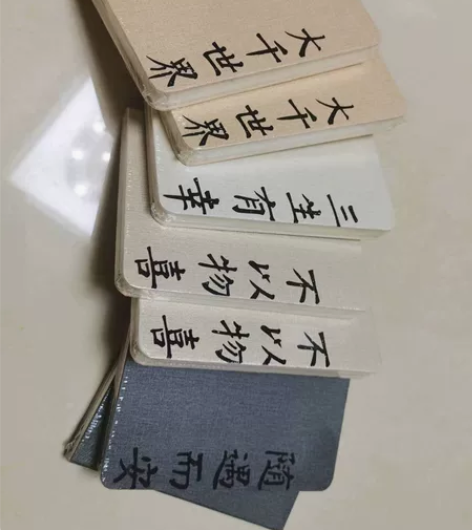 大千世界
大千世界
三生有幸
不以物喜
不以物喜
随遇而安